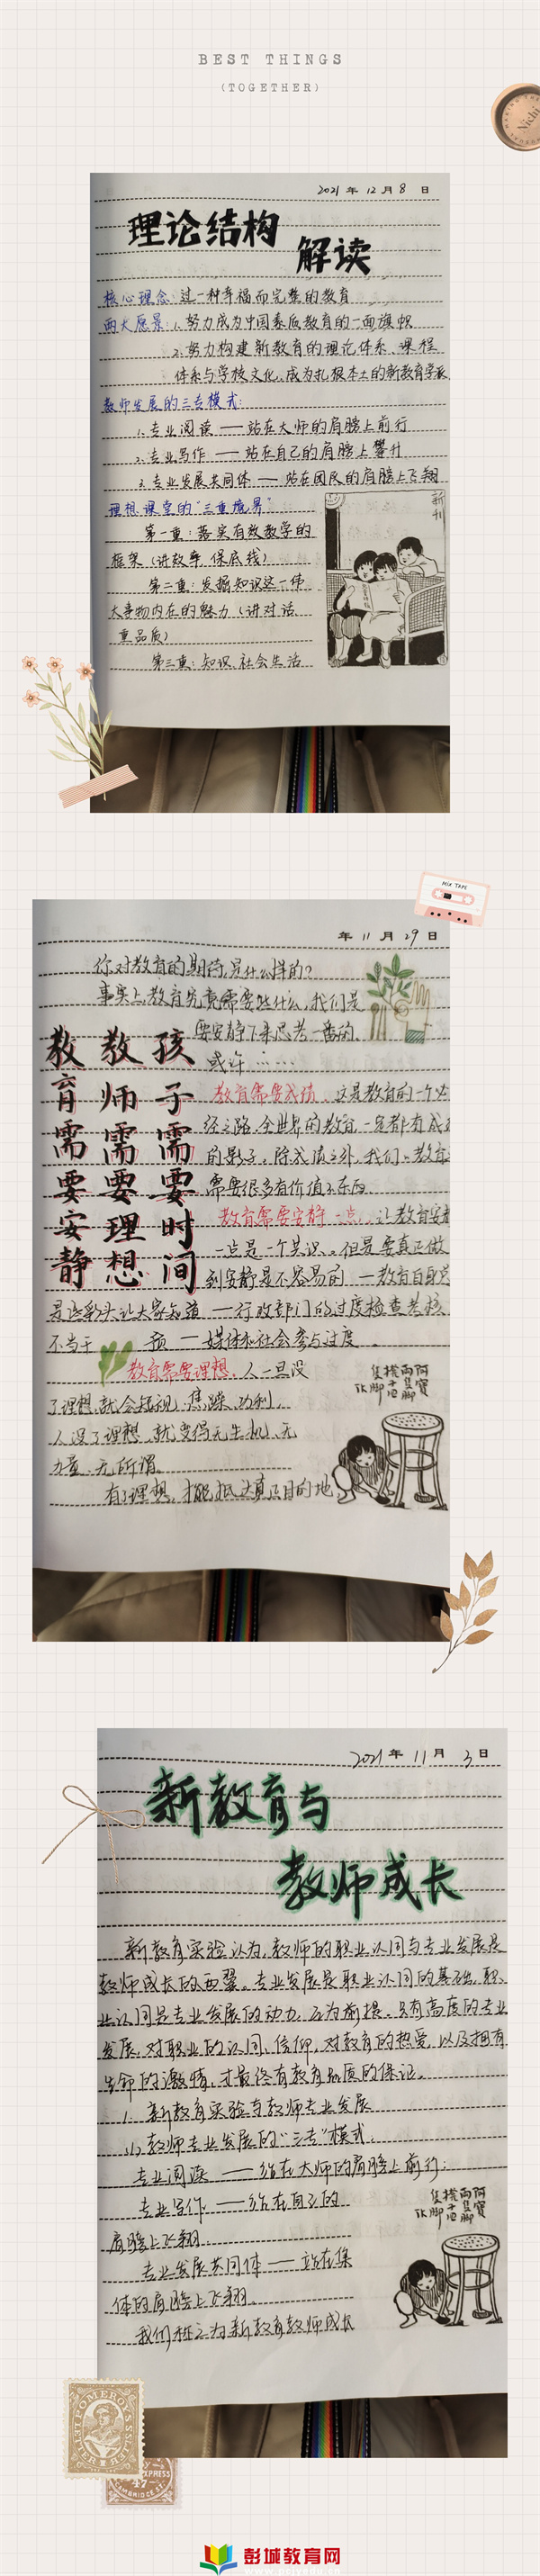 BEST THINGS
(TOGETHER)
Nichi
2021年12月8日
理论结构
解读
核心理念:过一种幸福而完整的教育
两大愿景:1.努力成为中国素质教育的一面旗帜
2.努力构建新教育的理论体系、课程
体系与学校文化,成为扎根本土的新教育学派
教师发展的三专模式:
1.专业阅读——站在大师的肩膀上前行
2.专业写作——站在自己的肩膀上攀升
3.专业发展共同体——站在团队的肩膀上飞翔
理想课堂的"三重境界"
第一重:落实有效教学的
框架(讲效率,保底线)
第二重:发掘知识这一伟
大事物内在的魅力(讲对话,
重品质)
第三重:知识、社会生活
新刊
MIX TAPE
年11月29日
你对教育的期待是什么样的?
事实上,教育究竟需要些什么,我们是
要安静下来思考一番的。
或许……
教育需要安静
教师需要理想
孩子需要时间
教育需要成绩,这是教育的一个必
经之路,全世界的教育,一定都有成
的影子。除成绩之外,我们、教育
需要很多有价值的东西
教育需要安静一点,让教育安静
一点是一个共识。但是要真正做
到安静是不容易的。—教育自身只
是这彩头让大家知道—行政部门的过度检查考核
不当干预—媒体和社会参与过度。
教育需要理想,人一旦没
了理想,就会短视、焦躁、功利,
人没了理想,就变得无生机、无
力量、无所谓。
有了理想,才能抵达真正目的地
阿宝两只脚
凳子四只脚
2021年11月3日
新教育与
教师成长
新教育实验认为,教师的职业认同与专业发展是
教师成长的两翼。专业发展是职业认同的基础,职
业认同是专业发展的动力,互为前提。只有高度的专业
发展,对职业的认同、信仰,对教育的热爱,以及拥有
生命的激情,才最终有教育品质的保证。
1.新教育实验与教师专业发展
(1)教师专业发展的"三专"模式。
专业阅读——站在大师的肩膀上前行;
专业写作——站在自己的
肩膀上飞翔
专业发展共同体——站在集
体的肩膀上飞翔。
我们称之为新教育教师成长
阿宝两只脚
凳子四只脚
POMEROY'S
LETTER
EXPRESS
47
CAMBRIDGE ST.
彭城教育网